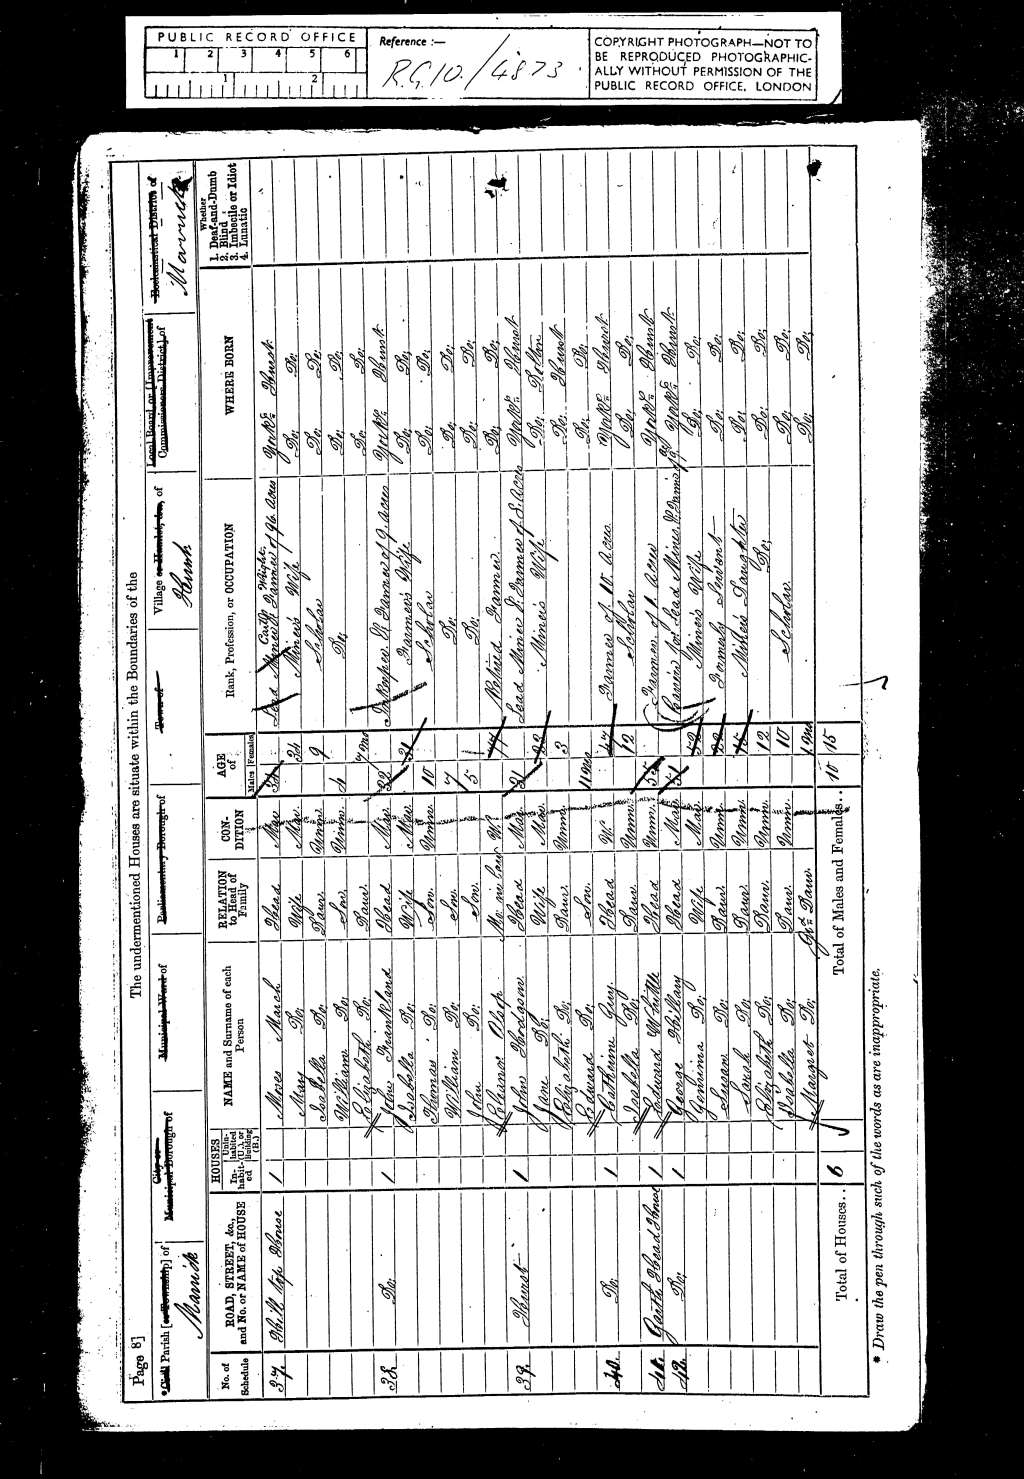 PUBLIC RECORD OFFICE
1 2 3 4 5 6
1 2
Reference :—
R.G.10./4873
COPYRIGHT PHOTOGRAPH—NOT TO
BE REPRODUCED PHOTOGRAPHIC-
ALLY WITHOUT PERMISSION OF THE
PUBLIC RECORD OFFICE, LONDON
Page 8]
The undermentioned Houses are situate within the Boundaries of the
*Civil Parish [or Township] of
City or Municipal Borough of
Municipal Ward of
Parliamentary Borough of
Town of
Village or Hamlet, &c., of
Local Board or [Improvement Commissioners District] of
Ecclesiastical District of
Marrick
Hurst
Marrick
No. of Schedule
ROAD, STREET, &c., and No. or NAME of HOUSE
HOUSES
In-habit-ed
Unin-habited (U.), or Building (B.)
NAME and Surname of each Person
RELATION to Head of Family
CON-DITION
AGE of
Males
Females
Rank, Profession, or OCCUPATION
WHERE BORN
Whether
1. Deaf-and-Dumb
2. Blind
3. Imbecile or Idiot
4. Lunatic
37. Hill top House 1 March Head Mar Yorks. Hurst
Mary Do. Wife Mar. 34 Miner's Wife Do. Do.
Isabella Do. Daur. Unm. 9 Scholar Do. Do.
William Do. Son. Unm. 4 Do. Do. Do.
Elizabeth Do. Daur 7 Mo Do.
38 Do. 1 John Frankland Head Mar 32 Farmer of 9 acres Yorks. Hurst
Isabella Do. Wife Mar 31 Farmer's Wife Do. Do.
Thomas Do. Son. Unm. 10 Scholar Do. Do.
William Do. Son. 7 Do. Do. Do.
John Do. Son 5 Do. Do. Do.
Eleanor Mo. in law W. Retired Farmer Do. Do.
39. Hurst 1 John Hodgson Head Mar Lead Miner & Farmer of 8 Acres Yorks. Hurst
Jane Do. Wife Mar. 23 Miner's Wife Do.
Elizabeth Do. Daur. Unm. 3 Do. Hurst
Edward Do. Son 11 Mo Do. Do.
40. Do. 1 Catherine Head W. Farmer of 10 Acres Yorks. Hurst
Isabella Do. Daur. Unm. 12 Scholar Do. Do.
41. Garth Head House 1 Edward Head Unm. 55 Farmer of Acres Yorks. Hurst
42. Do. 1 George Head Mar 51 Yorks. Hurst
Jemima Do. Wife Mar. 52 Miner's Wife Do. Do.
Susan Do. Daur Unm. 22 Formerly Servant Do. Do.
Sarah Do. Daur Unm 15 Miner's Daughter Do. Do.
Elizabeth Do. Daur. Unm. 12 Do. Do. Do.
Isabella Do. Daur. Unm. 10 Scholar Do. Do.
Margret Do. Gr. Daur. 1 Mo Do. Do.
Total of Houses.. 6
Total of Males and Females.. 10 15
* Draw the pen through such of the words as are inappropriate.